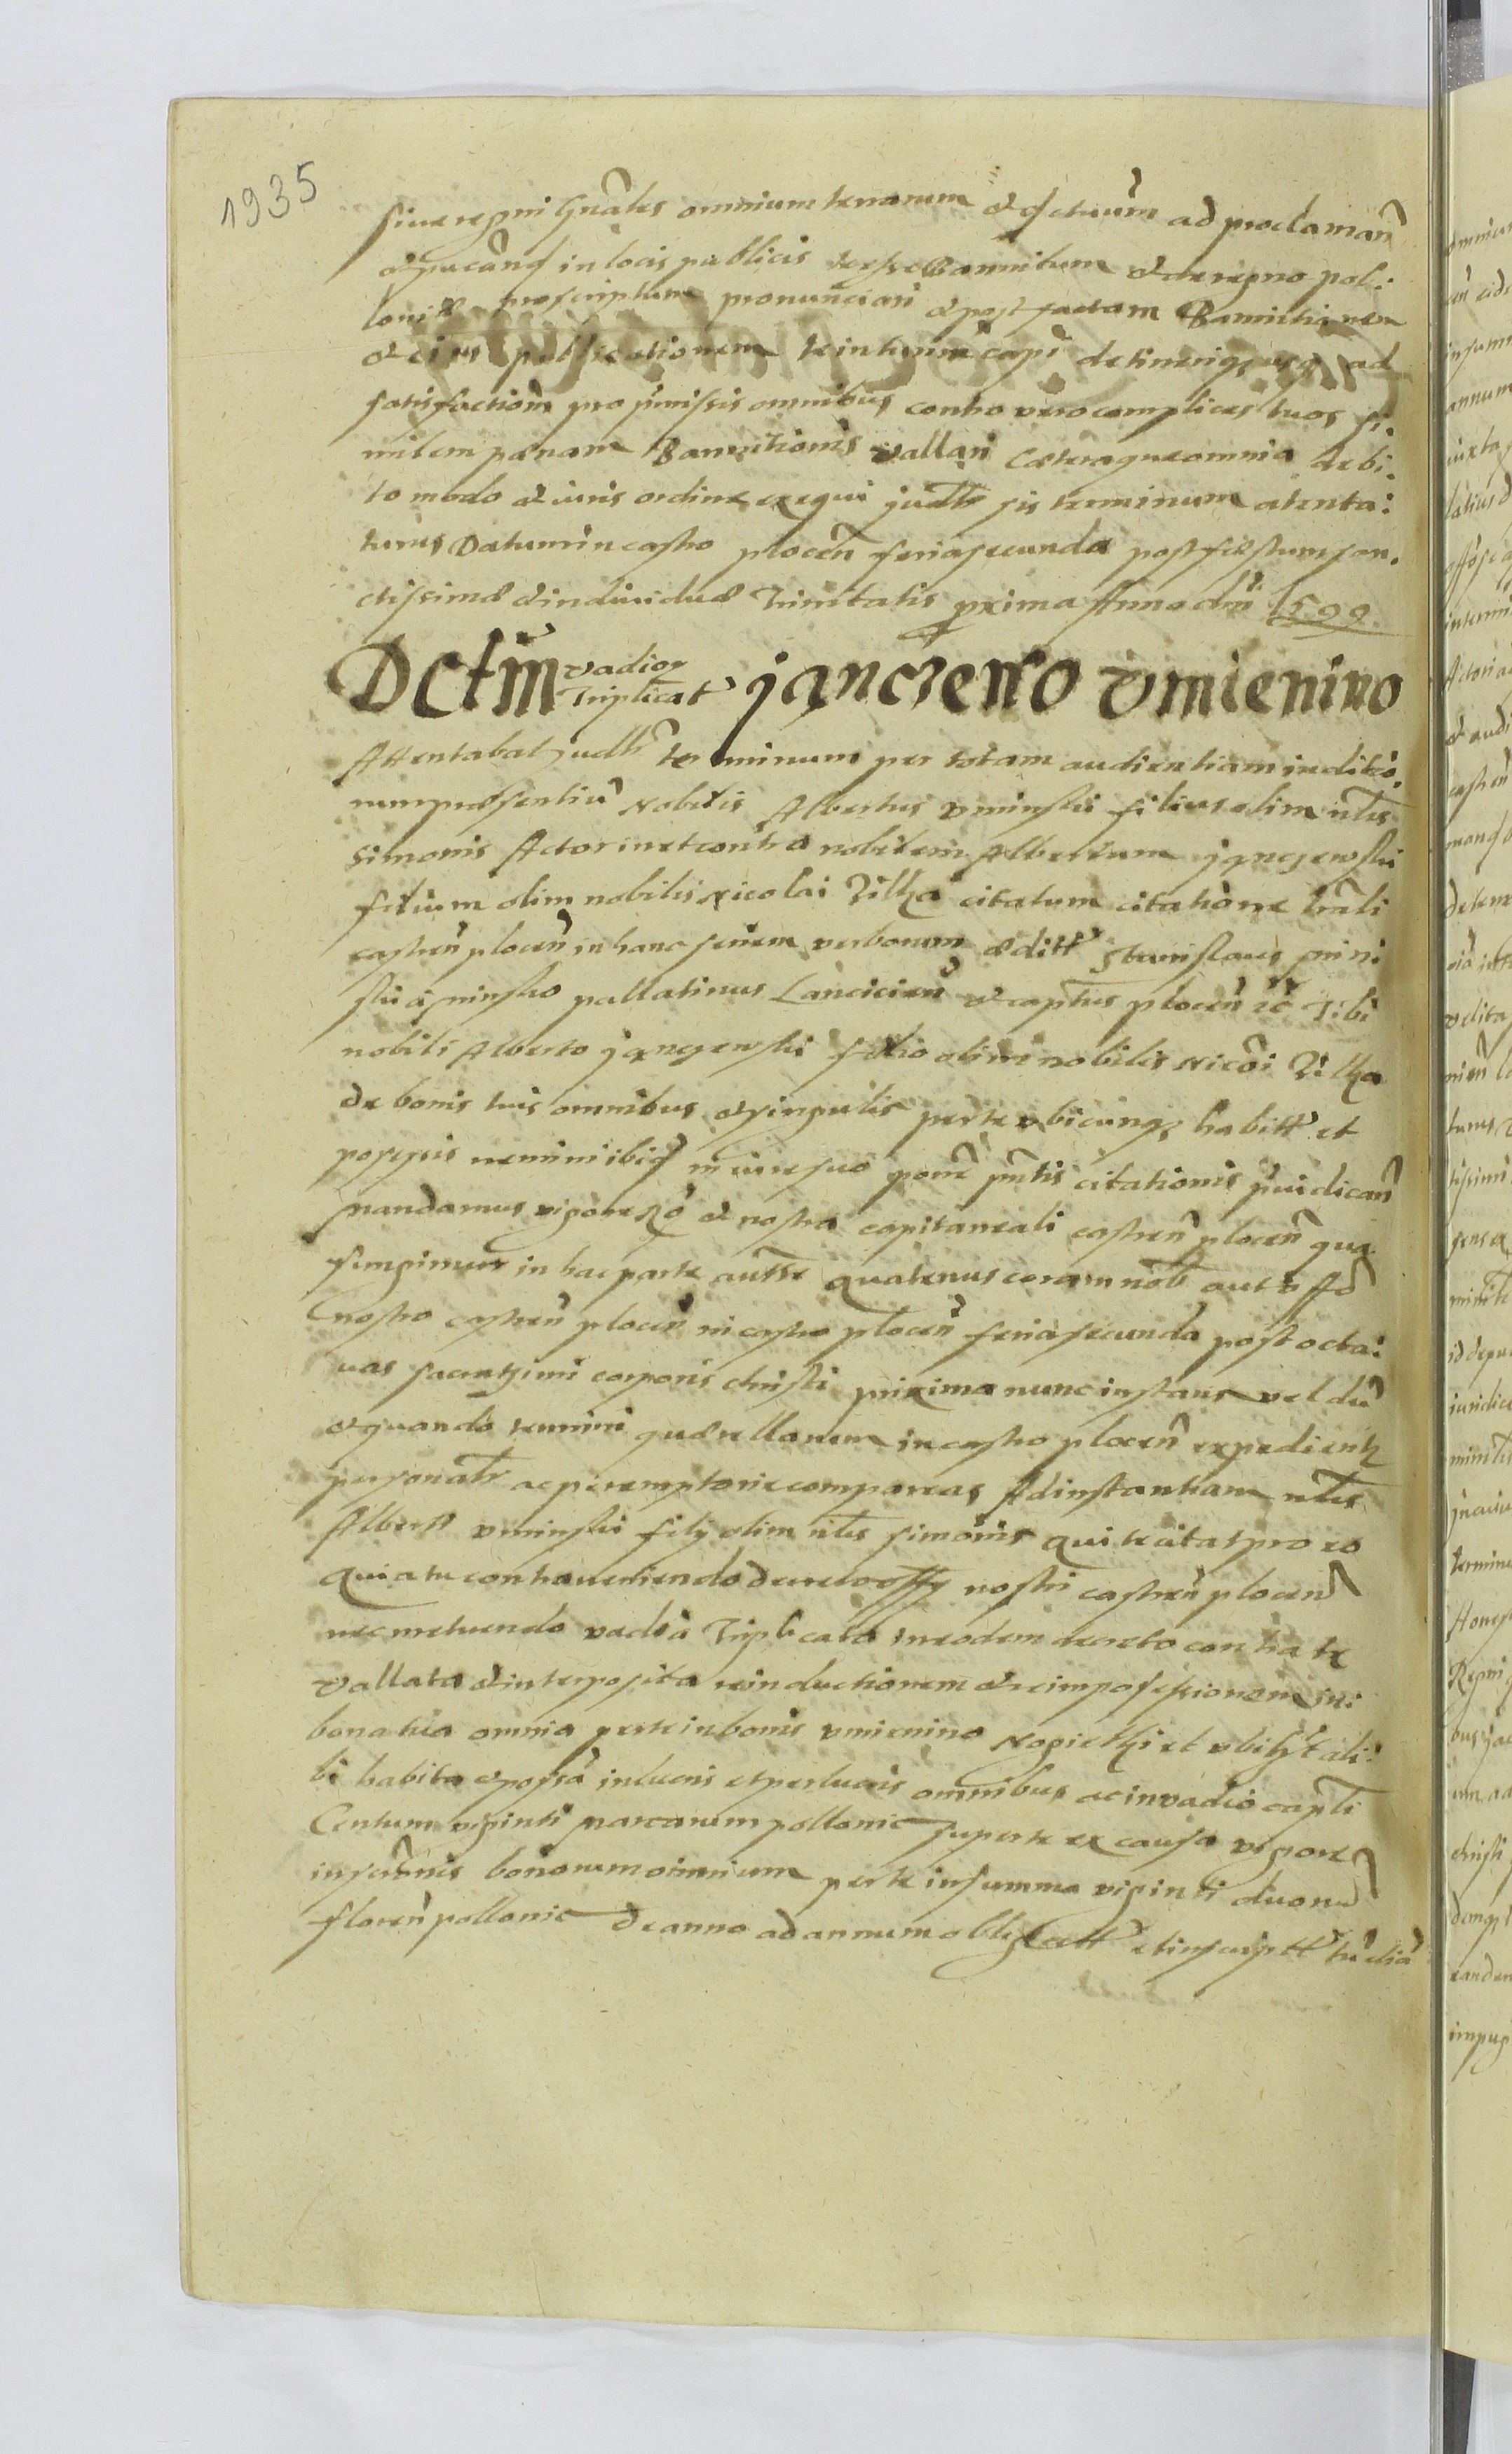 1935
siue regni gnales omnium terrarum & dctuum ad proclaman
in locis publicis te esse bannitum & de regno pol:
loniæ proscriptum pronunciari & post factam Bannitionem
& eius publicationem te interim capi detinerique usq ad
satisfaction pro pmissis omnibus contra vero complices tuos si.
milem pænam Bannitionis vallari Cæteraque omnia debi:
to modo & iuris ordine exequi judlr sis terminum atenta:
turus Datum in castro plocen feria secunda post festum san.
ctissimæ & individuæ Trinitatis prima Anno dni 1599
DCtm vadior Triplicat jąnczewo Umienino
Attentabat judlr terminum per totam audientiam iudicio.
rum præsentiu Nobilis Albertus Uminski filius olim nlis
Simonis Actor in et contra nobilem Albertum jąnczewski
filium olim nobilis Nicolai Zilka citatum citatione lrali
castren plocen in hanc seriem verborum æditt Stanislaus mini
ski a minsko pallatinus Lancicien & captus plocen zc Tibi
nobili Alberto jąnczewski filio olim nobilis Nicoi Zilka
de bonis tuis omnibus & singulis per te ubicunq habitt et
possessis nemini ibiq in iure suo pntis citationis
mandamus vigore & nostra capitaneali castren plocen qua
fungimur in hac parte autte quatenus coram nob aut offo
nostro castren plocen in castro plocen feria secunda post octa:
uas sacratissimi corporis christi proxima nunc instans vel du
& quando termini quærellarum in castro plocen expedient
personalr ac peremptorie compareas Ad instantiam nlis
Alberti Uminski filij olim nlis simonis qui te citat pro eo
Quia tu contraueniendo decreto offy nostri castren plocen
nec metuendo vadia Triplicata in eodem decreto contra te
vallata & interposita reinductionem & reimpossessionem in:
bona tua omnia per te in bonis umienino et ubilzt ali:
bi habita & possa in lucris et perlucris omnibus ac in vadio captli
Centum viginti marcarum pollonic super te ex causa vigore
inscrnis bonorum omnium per te in summa viginti duoru
floren pollonic de anno ad annum obligatt et inscriptt